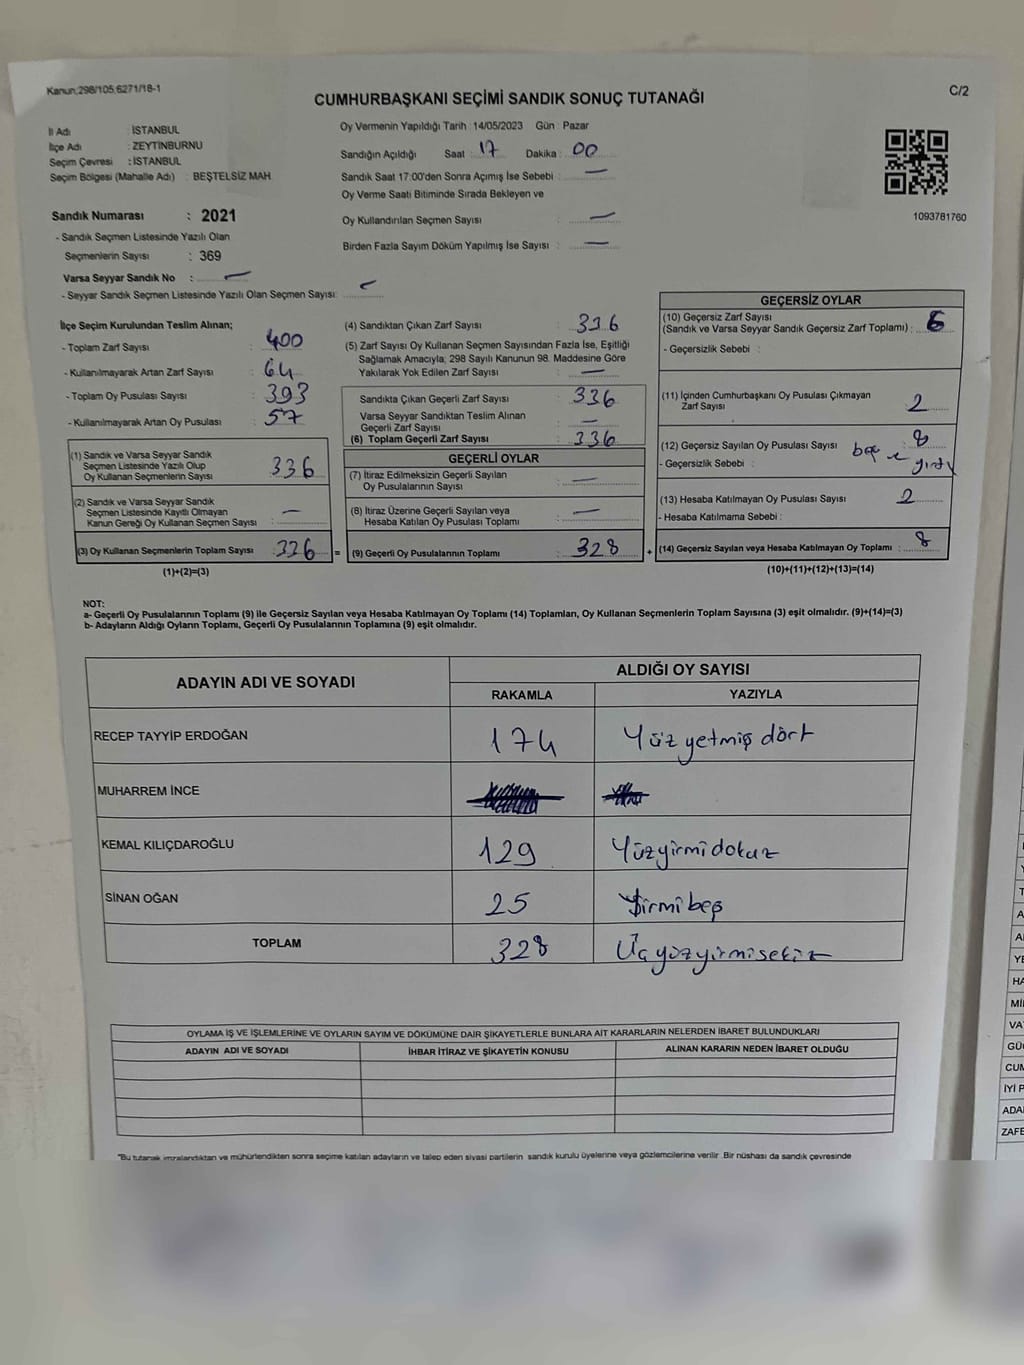 Kanun;298/105,6271/18-1
C/2
CUMHURBAŞKANI SEÇİMİ SANDIK SONUÇ TUTANAĞI
İl Adı : İSTANBUL
İlçe Adı : ZEYTİNBURNU
Seçim Çevresi : İSTANBUL
Seçim Bölgesi (Mahalle Adı) : BEŞTELSİZ MAH.
Oy Vermenin Yapıldığı Tarih : 14/05/2023 Gün : Pazar
Sandığın Açıldığı Saat : 17 Dakika : 00
Sandık Saat 17:00'den Sonra Açımış İse Sebebi : —
Oy Verme Saati Bitiminde Sırada Bekleyen ve
Oy Kullandırılan Seçmen Sayısı : —
Birden Fazla Sayım Döküm Yapılmış İse Sayısı : —
1093781760
Sandık Numarası : 2021
- Sandık Seçmen Listesinde Yazılı Olan
Seçmenlerin Sayısı : 369
Varsa Seyyar Sandık No : —
- Seyyar Sandık Seçmen Listesinde Yazılı Olan Seçmen Sayısı: —
İlçe Seçim Kurulundan Teslim Alınan;
- Toplam Zarf Sayısı : 400
- Kullanılmayarak Artan Zarf Sayısı : 64
- Toplam Oy Pusulası Sayısı : 393
- Kullanılmayarak Artan Oy Pusulası : 57
(1) Sandık ve Varsa Seyyar Sandık
Seçmen Listesinde Yazılı Olup
Oy Kullanan Seçmenlerin Sayısı : 336
(2) Sandık ve Varsa Seyyar Sandık
Seçmen Listesinde Kayıtlı Olmayan
Kanun Gereği Oy Kullanan Seçmen Sayısı : —
(3) Oy Kullanan Seçmenlerin Toplam Sayısı : 336 =
(1)+(2)=(3)
(4) Sandıktan Çıkan Zarf Sayısı : 336
(5) Zarf Sayısı Oy Kullanan Seçmen Sayısından Fazla İse, Eşitliği
Sağlamak Amacıyla; 298 Sayılı Kanunun 98. Maddesine Göre
Yakılarak Yok Edilen Zarf Sayısı : —
Sandıkta Çıkan Geçerli Zarf Sayısı : 336
Varsa Seyyar Sandıktan Teslim Alınan
Geçerli Zarf Sayısı : —
(6) Toplam Geçerli Zarf Sayısı : 336
GEÇERLİ OYLAR
(7) İtiraz Edilmeksizin Geçerli Sayılan
Oy Pusulalarının Sayısı : —
(8) İtiraz Üzerine Geçerli Sayılan veya
Hesaba Katılan Oy Pusulası Toplamı : —
(9) Geçerli Oy Pusulalarının Toplamı : 328 +
GEÇERSİZ OYLAR
(10) Geçersiz Zarf Sayısı
(Sandık ve Varsa Seyyar Sandık Geçersiz Zarf Toplamı) :
- Geçersizlik Sebebi :
(11) İçinden Cumhurbaşkanı Oy Pusulası Çıkmayan
Zarf Sayısı : 2
(12) Geçersiz Sayılan Oy Pusulası Sayısı : 8
- Geçersizlik Sebebi :
(13) Hesaba Katılmayan Oy Pusulası Sayısı : 2
- Hesaba Katılmama Sebebi :
(14) Geçersiz Sayılan veya Hesaba Katılmayan Oy Toplamı : 8
(10)+(11)+(12)+(13)=(14)
NOT:
a- Geçerli Oy Pusulalarının Toplamı (9) ile Geçersiz Sayılan veya Hesaba Katılmayan Oy Toplamı (14) Toplamları, Oy Kullanan Seçmenlerin Toplam Sayısına (3) eşit olmalıdır. (9)+(14)=(3)
b- Adayların Aldığı Oyların Toplamı, Geçerli Oy Pusulalarının Toplamına (9) eşit olmalıdır.
ADAYIN ADI VE SOYADI
ALDIĞI OY SAYISI
RAKAMLA YAZIYLA
RECEP TAYYİP ERDOĞAN 174 Yüz yetmiş dört
MUHARREM İNCE
KEMAL KILIÇDAROĞLU 129 Yüzyirmidokuz
SİNAN OĞAN 25 Yirmi beş
TOPLAM 328 Üçyüzyirmisekiz
OYLAMA İŞ VE İŞLEMLERİNE VE OYLARIN SAYIM VE DÖKÜMÜNE DAİR ŞİKAYETLERLE BUNLARA AİT KARARLARIN NELERDEN İBARET BULUNDUKLARI
ADAYIN ADI VE SOYADI İHBAR İTİRAZ VE ŞİKAYETİN KONUSU ALINAN KARARIN NEDEN İBARET OLDUĞU
"Bu tutanak imzalandıktan ve mühürlendikten sonra seçime katılan adayların ve talep eden siyasi partilerin sandık kurulu üyelerine veya gözlemcilerine verilir. Bir nüshası da sandık çevresinde